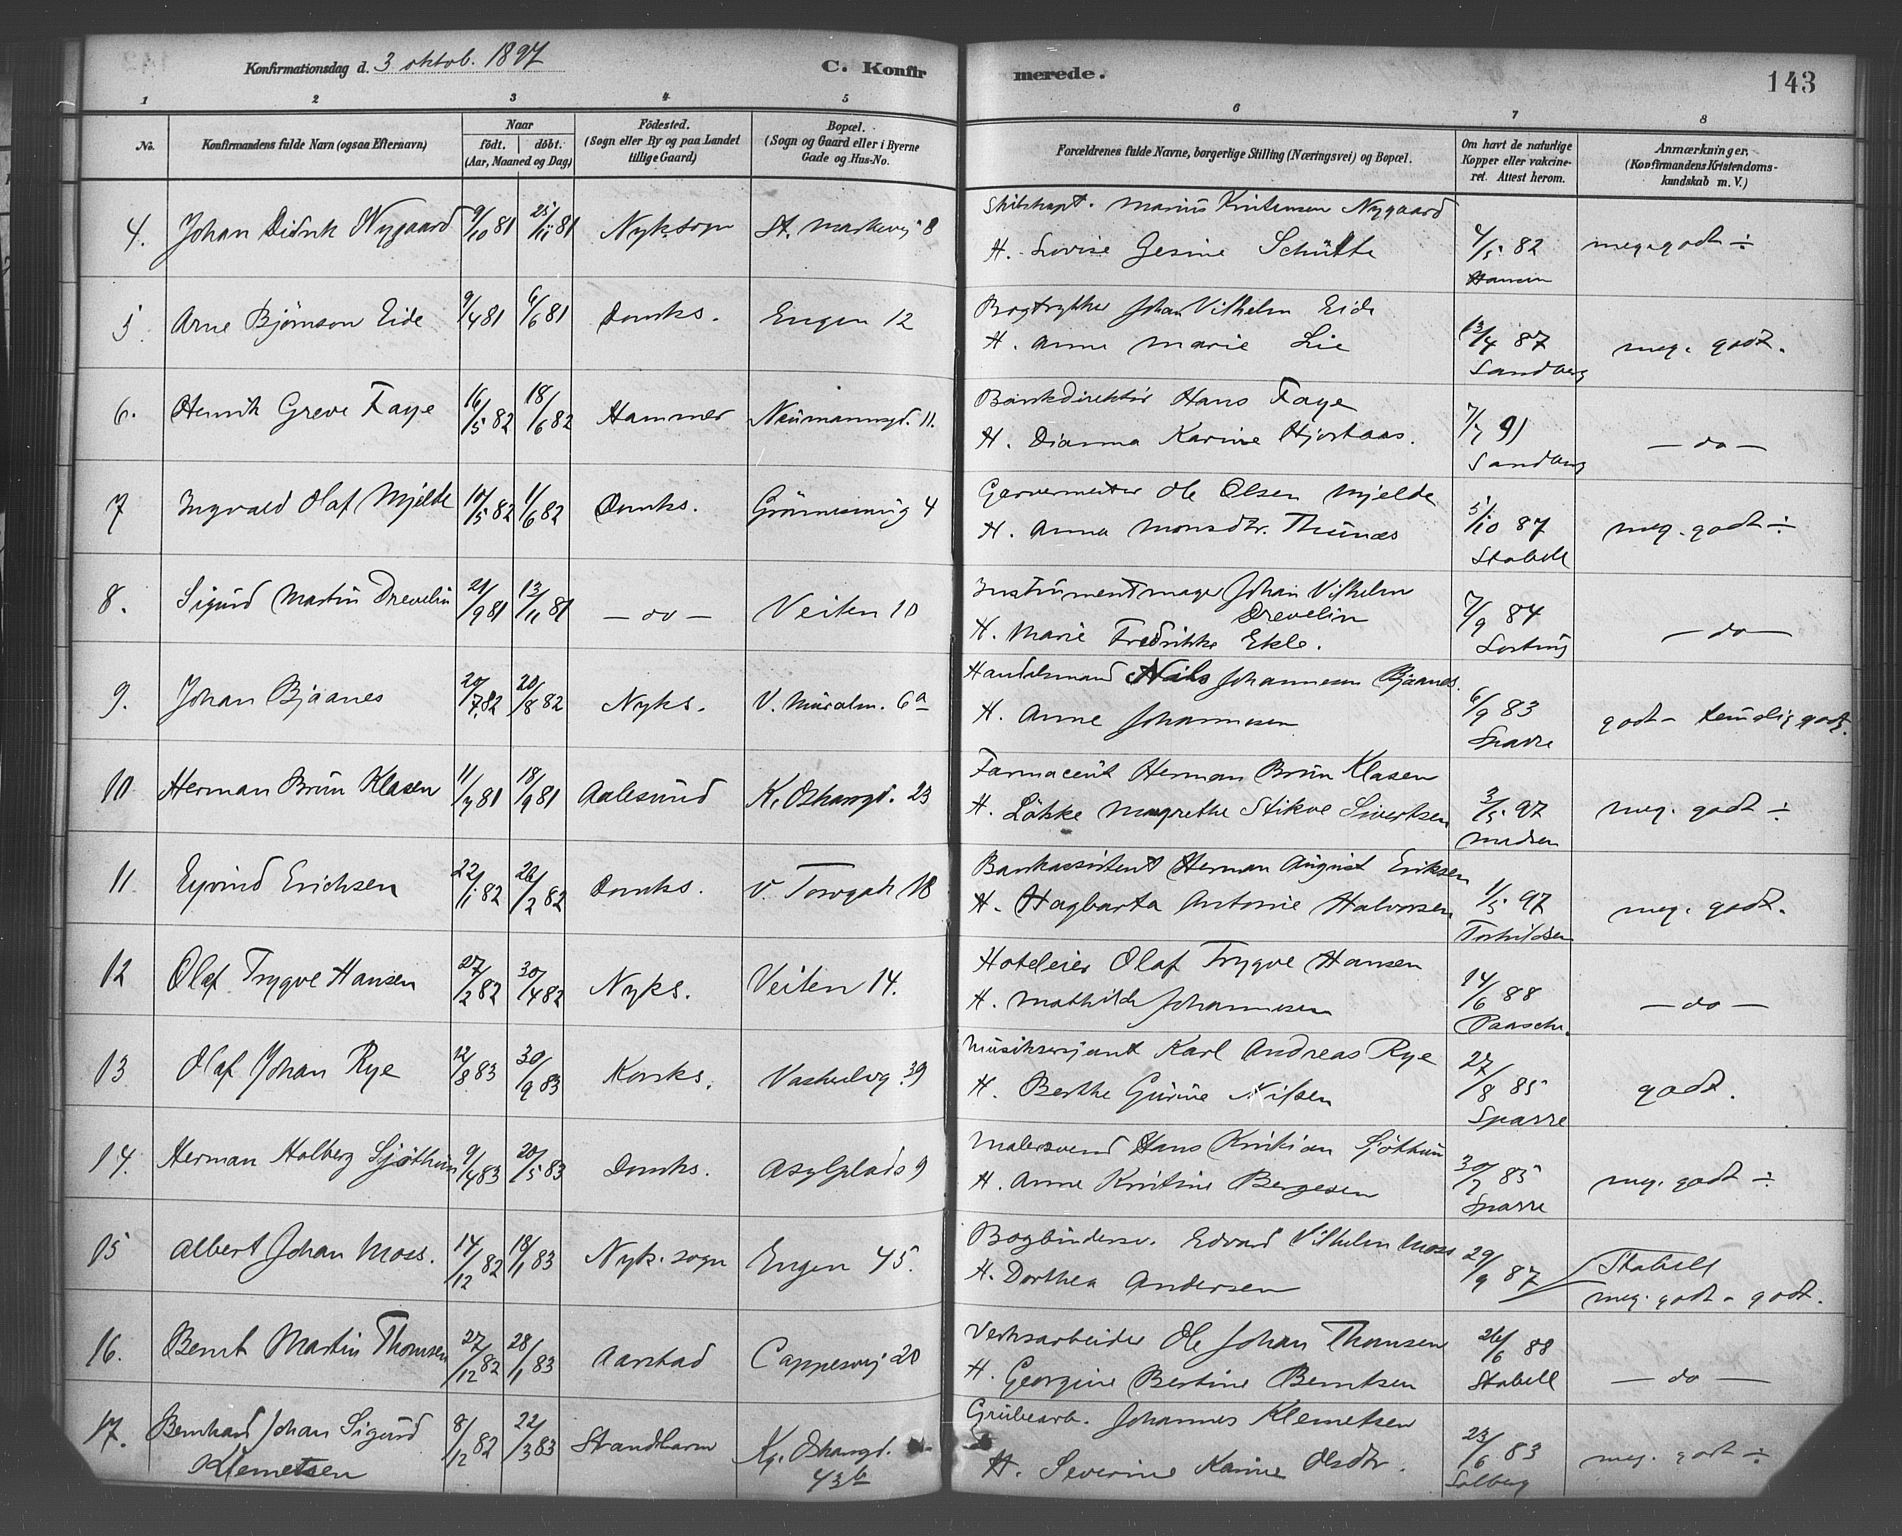 Konfirmationsdag d. 3 oktob. 1897
C. Konfirmerede.
143
1 2 3 4 5 6 7 8
No.
Konfirmandens fulde Navn (ogsaa Efternavn)
Naar
födt. döbt.
(Aar, Maaned og Dag)
Födested.
(Sogn eller By og paa Landet
tillige Gaard)
Bopæl.
(Sogn og Gaard eller i Byerne
Gade og Hus-No.
Forældrenes fulde Navne, borgerlige Stilling (Næringsvei) og Bopæl.
Om havt de naturlige
Kopper eller vakcine-
ret. Attest herom.
Anmærkninger,
(Konfirmandens Kristendoms-
kundskab m. V.)
4. Johan Didrik Nygaard 9/10 81 25/11 81 Nyk.sogn St. Markevej 8
Skibskapt. Marius Kristensen Nygaard
H. Lovise Gesine Schütte 4/5 82 meg. godt ÷
Hansen
5. Arne Bjørnson Eide 9/4 81 6/6 81 Domks. Engen 12
Bogtrykker Johan Vilhelm Eide
H. Anna Marie Lie 13/4 87 meg. godt.
Sandberg
6. Henrik Greve Faye 16/5 82 18/6 82 Hammer Neumannsgd. 11.
Bankdirektör Hans Faye
H. Dianna Karine Hjorthaas. 7/7 91 — do —
Sandberg
7 Ingvald Olaf Mjelde 10/5 82 11/6 82 Domks. Grönnesmug 4
Garvermester Ole Olsen Mjelde
H. Anna Monsdtr. Thunæs 5/10 87 meg. godt ÷
Stabell
8. Sigurd Martin Drevelin 21/9 81 13/11 81 — do — Veiten 10
Instrumentmager Johan Vilhelm
Drevelin
H. Marie Fredrikke Ekle. 7/9 84 — do —
9. Johan Bjaanes 20/7 82 20/8 82 Nyks. V. Muralm. 6a
Handelsmand Nils Johannesen Bjaanes.
H. Anne Johannesen 6/9 83 godt – temelig godt.
Sparre
10 Herman Brun Klasen 11/7 81 18/9 81 Aalesund K. Oskarsgd. 23
Farmaceut Herman Brun Klasen
H. Lökke Magrethe Stikve Sivertsen 3/5 97 meg. godt ÷
Madsen
11 Eyvind Erichsen 22/1 82 26/2 82 Domks. V. Torvgade 18
Bankassistent Herman August Eriksen
H. Hagbarta Antonie Halvorsen 1/5 97 meg. godt.
Torkildsen
12 Olaf Trygve Hansen 27/2 82 30/4 82 Nyks. Veiten 14.
Hoteleier Olaf Trygve Hansen
H. Mathilde Johannesen 14/6 88 — do —
Paasche
13 Olaf Johan Rye 12/8 83 30/9 83 Korsks. Vaskerelvg. 39
Musiksersjant Karl Andreas Rye
H. Berthe Gurine Nilsen 27/8 85 godt.
Sparre
14. Herman Holberg Sjöthun 9/4 83 20/5 83 Domks. Asylplads 9
Malersvend Hans Kristian Sjöthun
H. Anne Kristine Bergesen 30/7 85 meg. godt ÷
Sparre
15 Albert Johan Moss. 14/12 82 18/1 83 Nyk. sogn Engen 45.
Bogbindersv. Edvard Vilhelm Moss
H. Dorthea Andersen 29/9 87 Stabell
meg. godt – godt.
16. Bernt Martin Thomsen 27/12 82 28/1 83 Aarstad Cappesvej 20
Verksarbeider Ole Johan Thomsen
H. Georgine Bertine Berntsen 26/6 88 — do —
Stabell
17. Bernhard Johan Sigurd 8/12 82 22/3 83 Strandbarm Kg. Oskarsgd.
Klemetsen 43b
Grubearb. Johannes Klemetsen
H. Severine Karine Olsdtr. 23/6 83 meg. godt ÷
Solberg